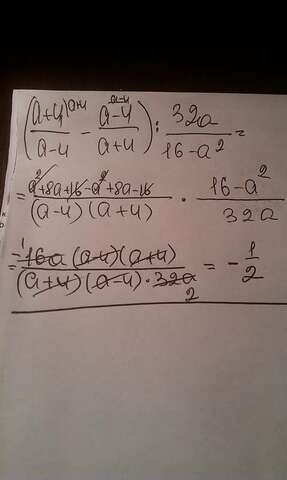 ((a+4)^(a+4)/(a-4) - (a-4)^(a-4)/(a+4)) : 32a/(16-a²) =
= (a²+8a+16-a²+8a-16)/((a-4)(a+4)) · (16-a²)/(32a)
= -¹16a(a-4)(a+4)/((a+4)(a-4)·32a 2) = -1/2